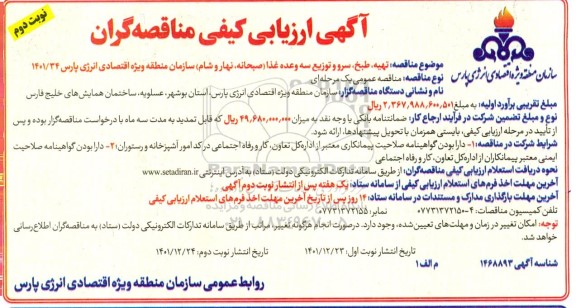 نوبت دوم
آگهی ارزیابی کیفی مناقصه‌گران
سازمان منطقه ویژه اقتصادی انرژی پارس
موضوع مناقصه: تهیه، طبخ، سرو و توزیع سه وعده غذا (صبحانه، نهار و شام) سازمان منطقه ویژه اقتصادی انرژی پارس ۱۴۰۱/۳۴
نوع مناقصه: مناقصه عمومی یک مرحله‌ای
نام و نشانی دستگاه مناقصه‌گزار: سازمان منطقه ویژه اقتصادی انرژی پارس، استان بوشهر، عسلویه، ساختمان همایش‌های خلیج فارس
مبلغ تقریبی برآورد اولیه: به مبلغ ۲,۳۶۷,۹۸۸,۶۰۰,۵۰۱ ریال
نوع و مبلغ تضمین شرکت در فرآیند ارجاع کار: ضمانتنامه بانکی یا وجه نقد به میزان ۴۹,۶۸۰,۰۰۰,۰۰۰ ریال که قابل تمدید به مدت سه ماه با درخواست مناقصه‌گزار بوده و پس از تأیید در مرحله ارزیابی کیفی، بایستی همزمان با تحویل پیشنهادها، ارائه شود.
شرایط شرکت در مناقصه: ۱- دارا بودن گواهینامه صلاحیت پیمانکاری معتبر از اداره‌کل تعاون، کار و رفاه اجتماعی در کد امور آشپزخانه و رستوران؛ ۲- دارا بودن گواهینامه صلاحیت ایمنی معتبر پیمانکاران از اداره‌کل تعاون، کار و رفاه اجتماعی
نحوه دریافت استعلام ارزیابی کیفی مناقصه‌گران: از طریق سامانه تدارکات الکترونیکی دولت (ستاد) به آدرس اینترنتی www.setadiran.ir
آخرین مهلت اخذ فرم‌های استعلام ارزیابی کیفی از سامانه ستاد: یک هفته پس از انتشار نوبت دوم آگهی
آخرین مهلت بارگذاری مدارک و مستندات در سامانه ستاد: ۱۴ روز پس از تاریخ آخرین مهلت اخذ فرم‌های استعلام ارزیابی کیفی
تلفن کمیسیون مناقصات: ۴-۰۷۷۳۱۳۷۲۱۵۰ نمابر: ۰۷۷۳۱۳۷۲۱۵۵
توجه: امکان تغییر در زمان و مهلت‌های تعیین‌شده، وجود دارد. درصورت انجام هرگونه تغییر، مراتب از طریق سامانه تدارکات الکترونیکی دولت (ستاد) به مناقصه‌گران اطلاع‌رسانی خواهد شد.
تاریخ انتشار نوبت اول: ۱۴۰۱/۱۲/۲۳ تاریخ انتشار نوبت دوم: ۱۴۰۱/۱۲/۲۴
شناسه آگهی ۱۴۶۸۸۹۳ م الف ۱
روابط عمومی سازمان منطقه ویژه اقتصادی انرژی پارس